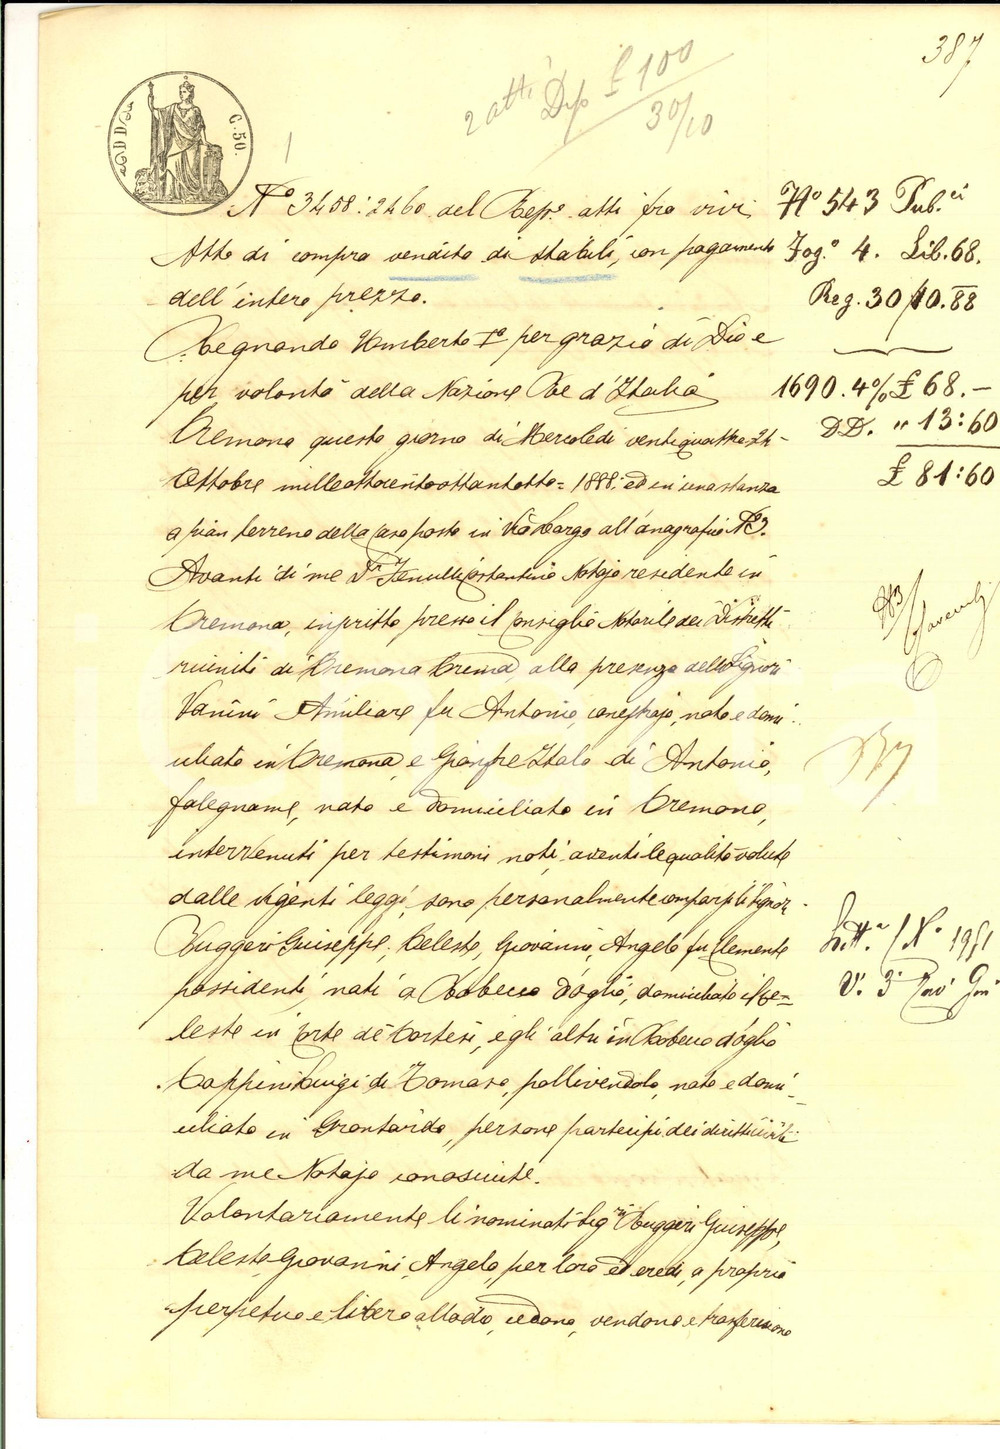 387
2 atti Dep £ 100
30/10
C. 50.
N.° 3458:2460 del Rep.° atti fra vivi
Atto di compra vendita di stabili, con pagamento
dell'intero prezzo.
Regnando Umberto I° per grazia di Dio e
per volontà della Nazione Re d'Italia
Cremona questo giorno di Mercoledi ventiquattro 24
Ottobre milleottocentoottantotto = 1888: ed in una stanza
a pian terreno della casa posta in Via Largo all'anagrafico N° 3.
Avanti di me D.r Costantino Notajo residente in
Cremona, inscritto presso il Consiglio Notarile dei Distretti
riuniti di Cremona Crema, alla presenza delli Signori
Vanini Amiliare fu Antonio, canestrajo, nato e domi-
ciliato in Cremona, e Italo di Antonio,
falegname, nato e domiciliato in Cremona,
intervenuti per testimoni noti, aventi le qualità volute
dalle vigenti leggi, sono personalmente comparsi li Signori
Ruggeri Guiseppe, Celeste, Giovanni, Angelo fu Clemente
possidenti, nati a Robecco d'Oglio, domiciliato il Ce-
leste in Corte de' Cortesi, e gli altri in Robecco d'Oglio
Cappini Luigi di Tomaso, pollivendolo, nato e domi-
ciliato in Grontardo, persone partecipi dei diritti civili
da me Notajo conosciute.
Volontariamente li nominati Sig.ri Ruggeri Guiseppe,
Celeste, Giovanni, Angelo, per loro ed eredi, a proprio
perpetuo e libero allodio, cedono, vendono e trasferiscono
N° 543 Pub.ci
Fog.° 4. Lib. 68.
Reg. 30/10.88
1690. 4% £ 68.—
DD. " 13:60
£ 81:60
N° 1951
V. 3